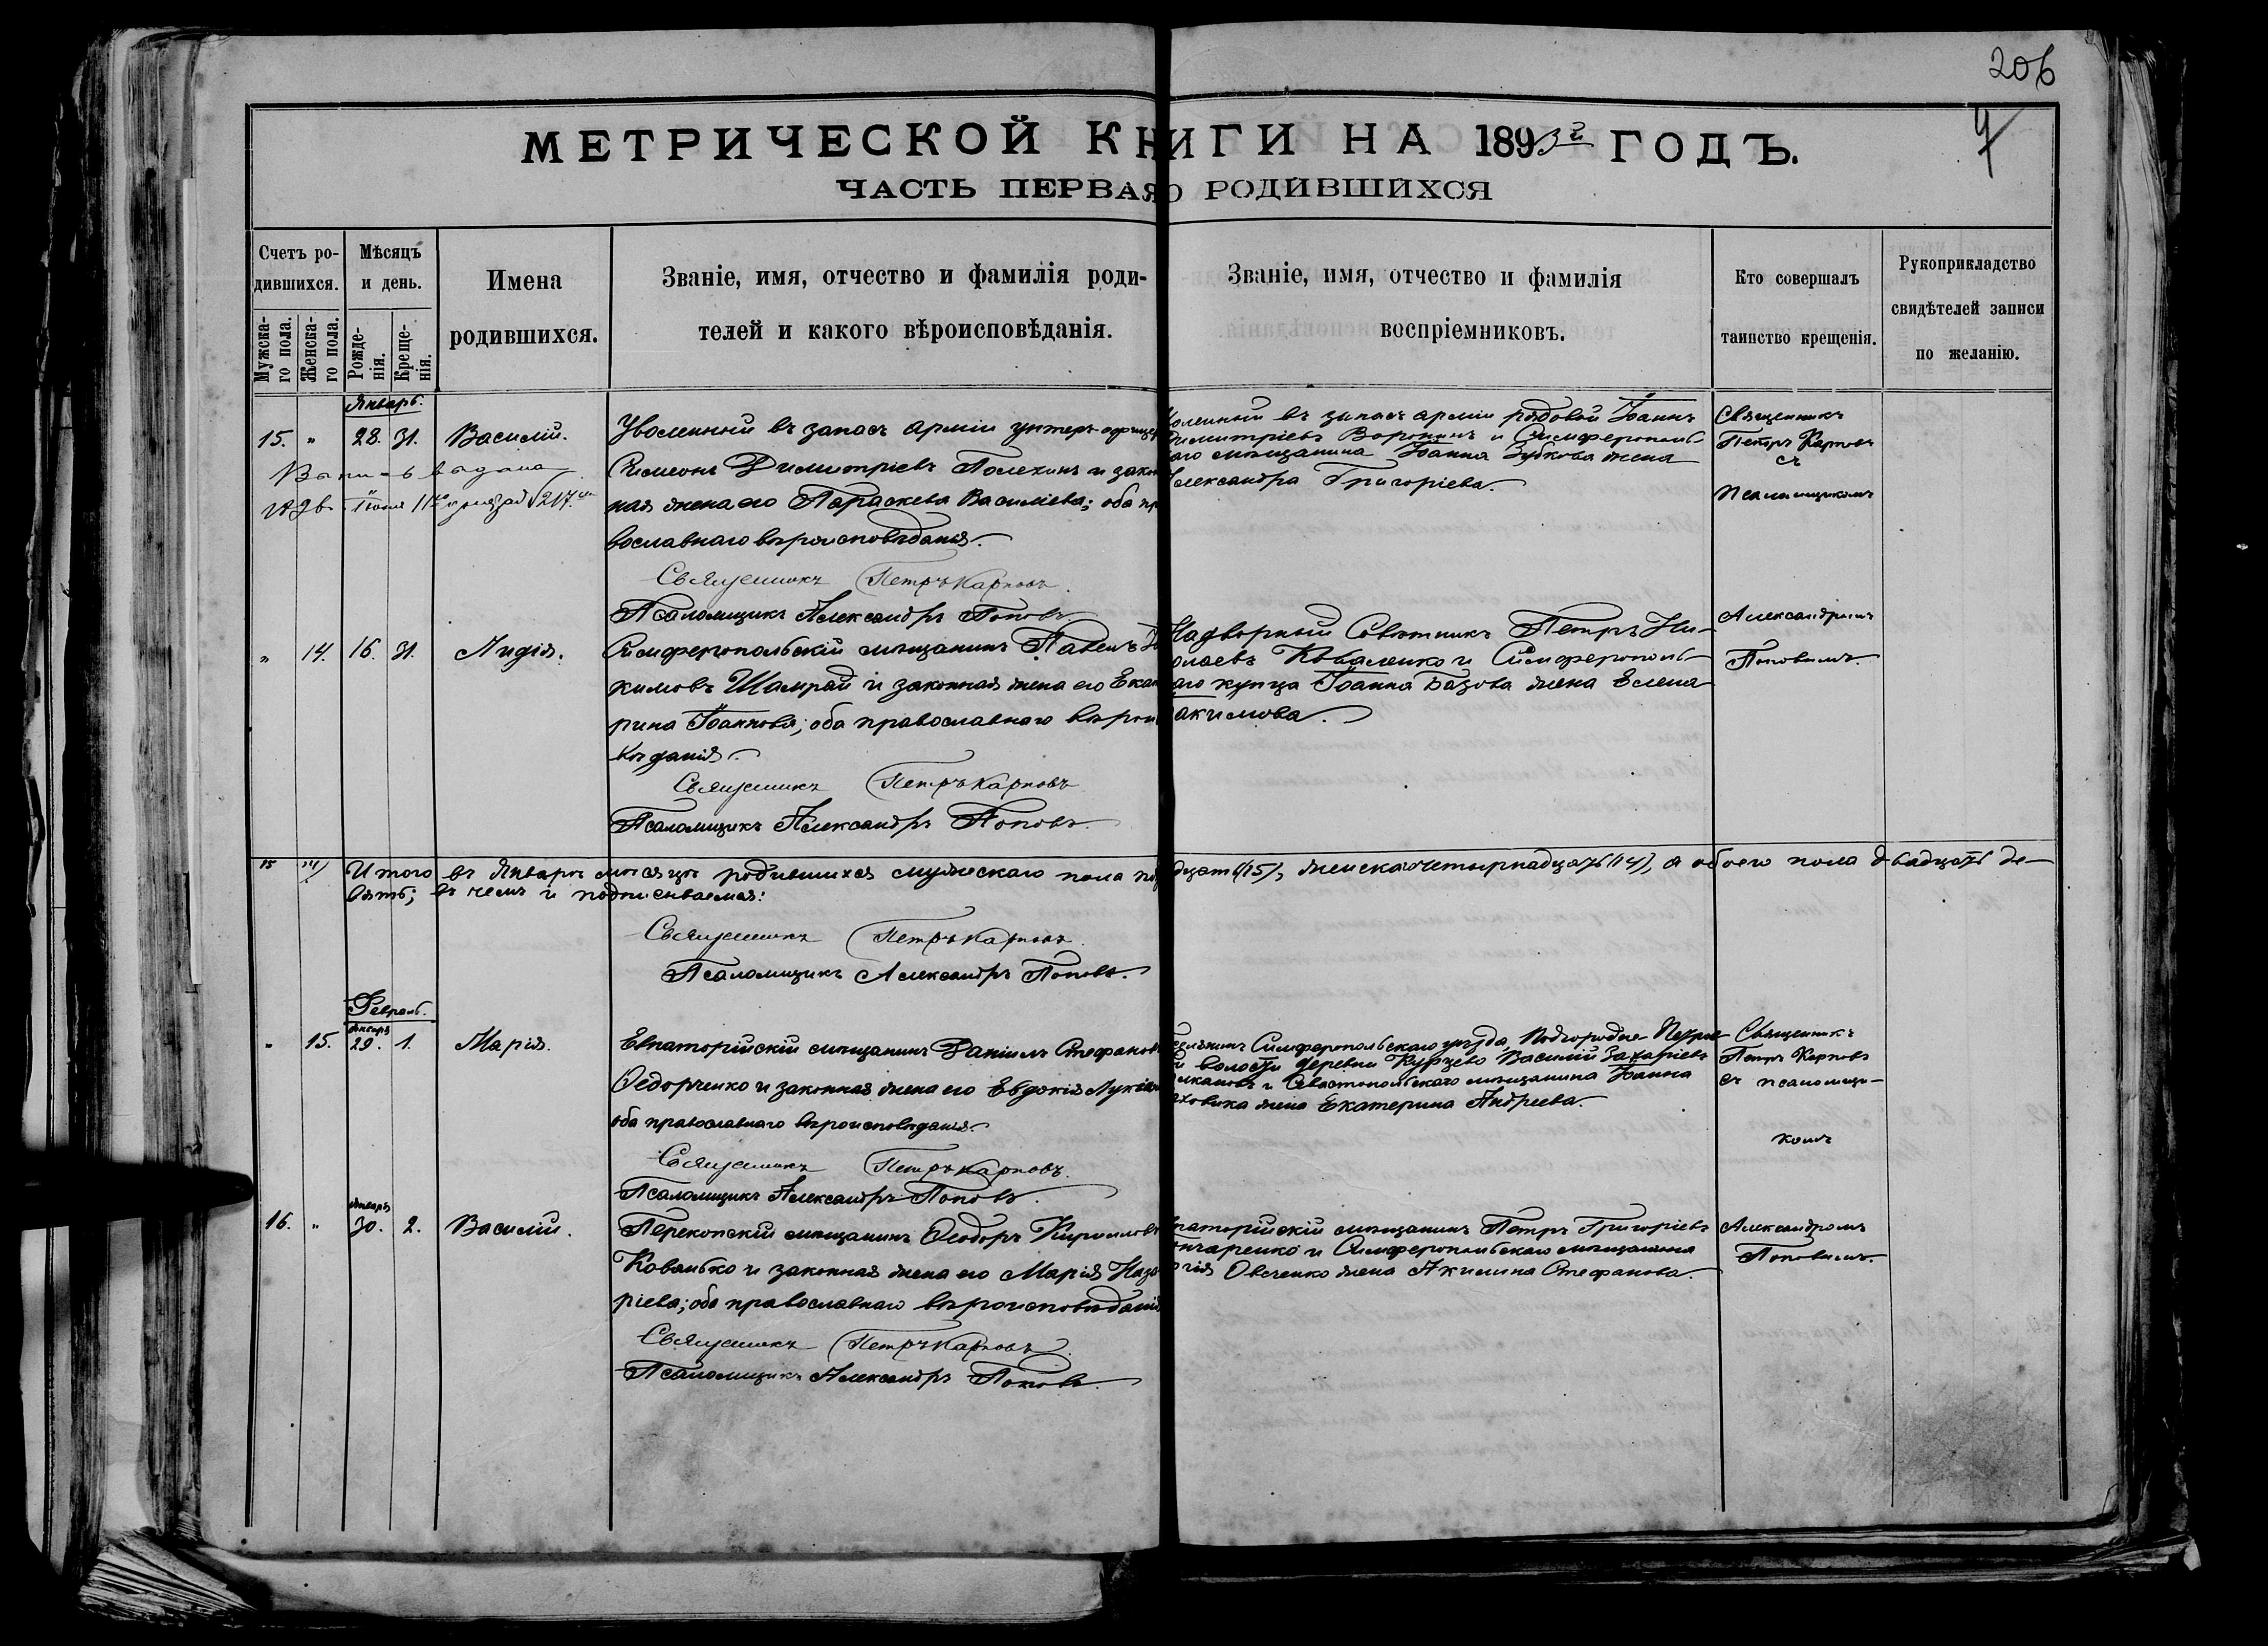 206
7
МЕТРИЧЕСКОЙ КНИГИ НА 1893й ГОДЪ.
ЧАСТЬ ПЕРВАЯ О РОДИВШИХСЯ
Счетъ ро-
дившихся.
Мужска-
го пола.
Женска-
го пола.
Мѣсяцъ
и день.
Рожде-
нія.
Креще-
нія.
Имена
родившихся.
Званіе, имя, отчество и фамилія роди-
телей и какого вѣроисповѣданія.
Званіе, имя, отчество и фамилія
воспріемниковъ.
Кто совершалъ
таинство крещенія.
Рукоприкладство
свидѣтелей записи
по желанію.
Январь.
15. " 28. 31. Василій.
Уволенный въ запасъ арміи унтеръ-офицер
Симеонъ Димитріевъ Полехинъ и закон
ная жена его Параскева Васильева; оба пр
вославнаго вѣроисповѣданія.
Священникъ Петръ Карповъ
Псаломщикъ Александръ Поповъ.
выдана
Іюня
воленный въ запасъ арміи рядовой Іоаннъ
Димитріевъ Воронинъ и Симферополь-
аго мѣщанина Іоанна Зубкова жена
Александра Григоріева.
Священникъ
Петръ Карповъ
съ
псаломщикомъ
Александромъ
Поповымъ.
" 14. 16. 31. Лидія.
Симферопольскій мѣщанинъ Павелъ
кимовъ Шамрай и законная жена его Екат
рина Іоаннова; оба православнаго вѣроис
вѣданія.
Священникъ Петръ Карповъ
Псаломщикъ Александръ Поповъ.
Надворный Совѣтникъ Петръ Ни-
олаевъ Коваленко и Симферополь-
аго купца Іоанна Базова жена Елена
акимова.
15 14 Итого въ Январѣ мѣсяцѣ родившихся мужескаго пола пя
дцать (15), женска четырнадцать (14), а обоего пола двадцать де-
вять; въ чемъ и подписываемся:
Священникъ Петръ Карповъ
Псаломщикъ Александръ Поповъ.
Февраль.
" 15. Январь 29. 1. Марія.
Евпаторійскій мѣщанинъ Даніилъ Стефанов
Ѳедорченко и законная жена его Евдокія Лукіан
оба православнаго вѣроисповѣданія.
Священникъ Петръ Карповъ.
Псаломщикъ Александръ Поповъ.
Симферопольскаго уѣзда, Подгородне-Петров
й волости деревни Курцево Василій Захаріевъ
и Севастопольскаго мѣщанина Іоанна
жена Екатерина Андреева.
Священникъ
Петръ Карповъ
съ псаломщи-
комъ
Александромъ
Поповымъ.
16. " Январь 30. 2. Василій.
Перекопскій мѣщанинъ Ѳеодоръ Кирилловъ
Ковалько и законная жена его Марія Наза
ріева; оба православнаго вѣроисповѣданія
Священникъ Петръ Карповъ.
Псаломщикъ Александръ Поповъ.
паторійскій мѣщанинъ Петръ Григоріевъ
нчаренко и Симферопольскаго мѣщанина
ргія Овсенко жена Акилина Стефанова.